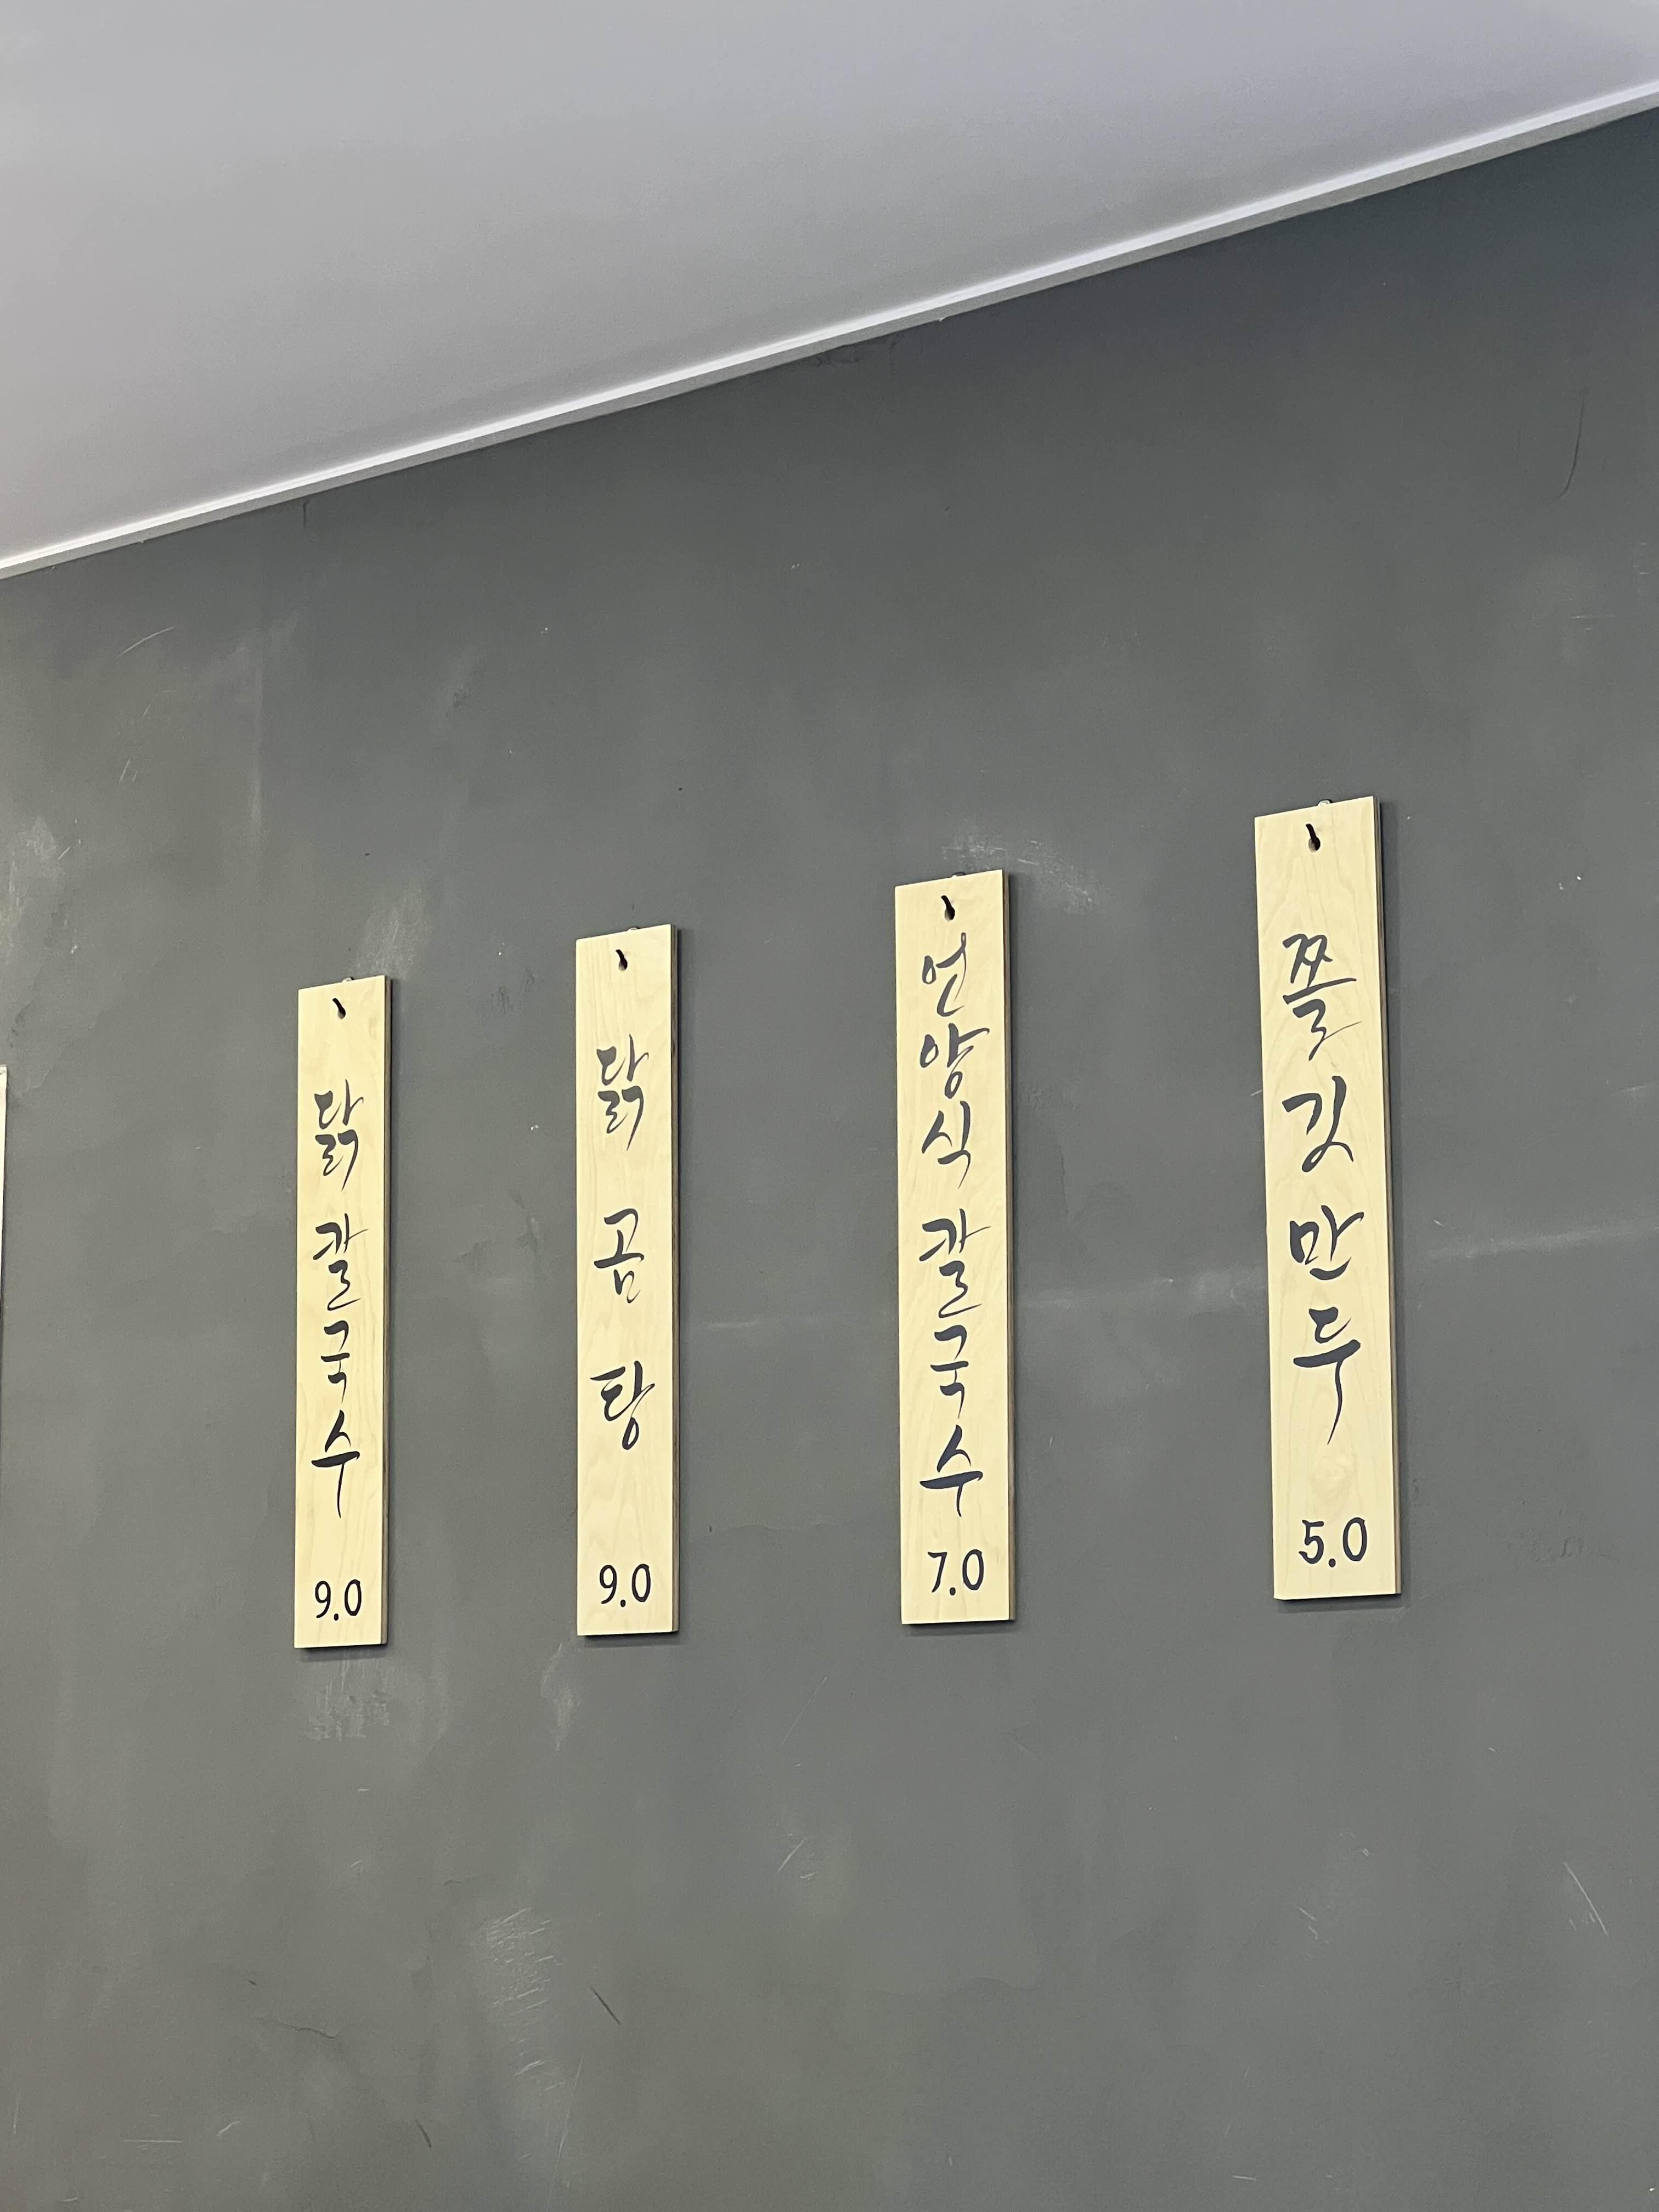 닭 칼국수
9.0
닭 곰 탕
9.0
언양식 칼국수
7.0
쫄깃 만두
5.0